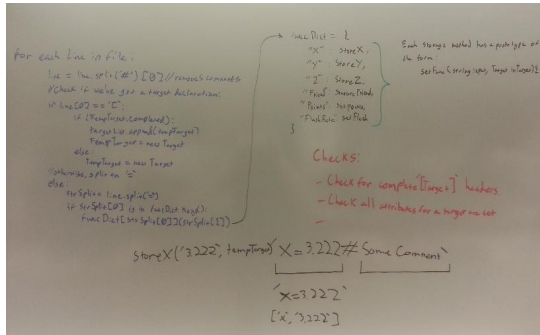 for each line in file:
line = line.split('#')[0] // removes comments
# Check if we've got a target declaration:
if line[0] == '[':
if (TempTarget.completed):
targetList.append(tempTarget)
TempTarget = new Target
else:
TempTarget = new Target
// otherwise, split on '='
else:
strSplit = line.split('=')
if strSplit[0] is in funcDict.keys():
funcDict[strSplit[0]](strSplit[1])
funcDict = {
"X" : storeX,
"Y" : storeY,
"Z" : storeZ,
"Friend" :
"Points" : setPoints
"FlashRate" : setFlash
}
Each storage method has a prototype of
the form:
setFunc(string input, Target inTarget)
Checks:
- Check for complete '[Target]' headers
- Check all attributes for a target are set
-
storeX('3.222', tempTarget) X = 3.222 # Some Comment
'x=3.222'
['x', '3.222']